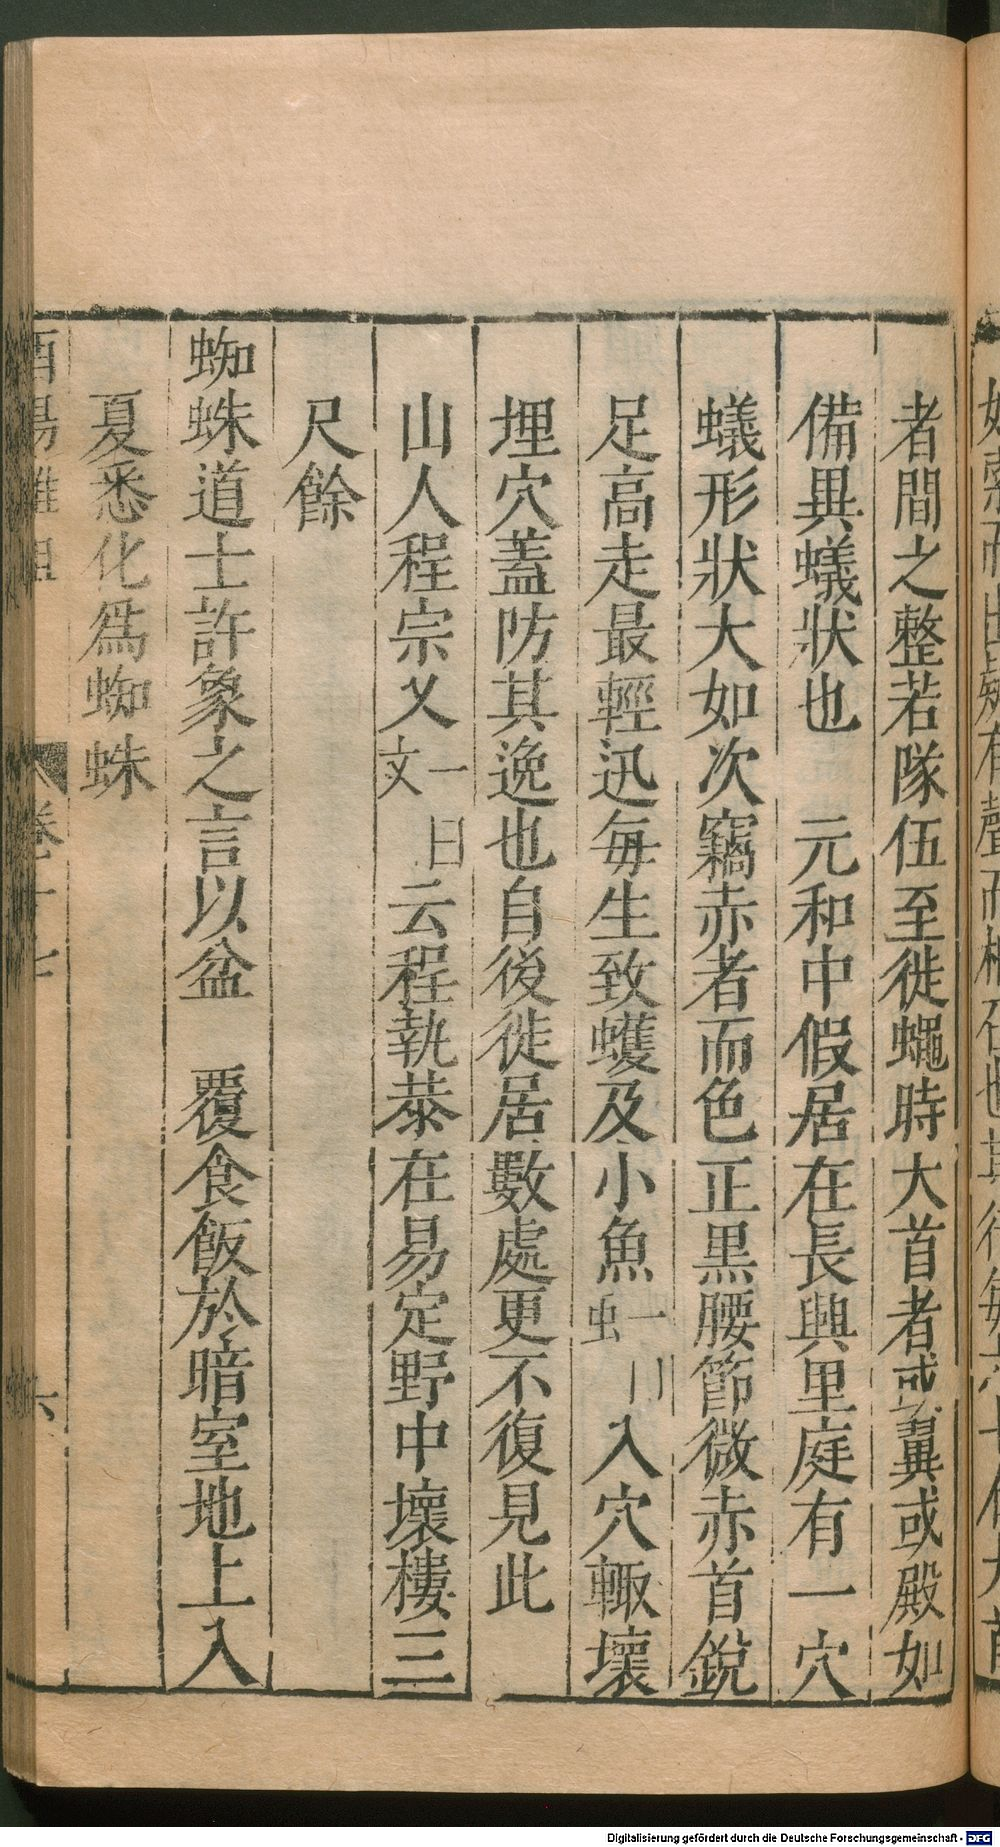 者間之整若隊伍至徙蠅時大首者或翼或殿如
備異蟻狀也 元和中假居在長興里庭有一穴
蟻形狀大如次竊赤者而色正黒腰節微赤首銳
足高走最輕迅每生致蠖及小魚一虫入穴輙壞
埋穴蓋防其逸也自後徙居數處更不復見此
山人程宗乂一曰文云程執恭在易定野中壞樓三
尺餘
蜘蛛道士許象之言以盆 覆食飯於暗室地上入
夏悉化爲蜘蛛
酉陽雜俎 卷十七 六
Digitalisierung gefördert durch die Deutsche Forschungsgemeinschaft - DFG